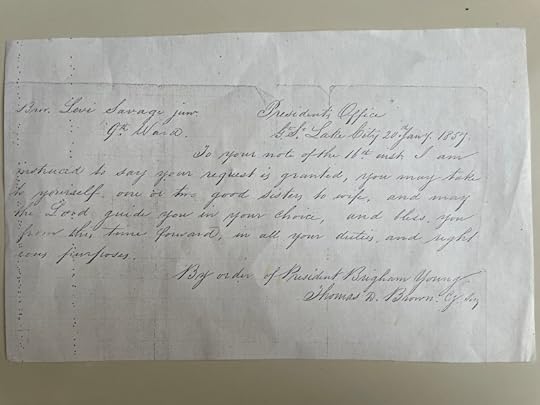 Bro. Levi Savage junr. Presidents Office
9th Ward. G. S. Lake City 20th Jany. 1857.
To your note of the 11th inst I am
instruced to say your request is granted, you may take
to yourself one or two good sisters to wife, and may
the Lord guide you in your choice, and bless you
from this time forward, in all your duties and right
eous purposes.
By order of President Brigham Young
Thomas D. Brown